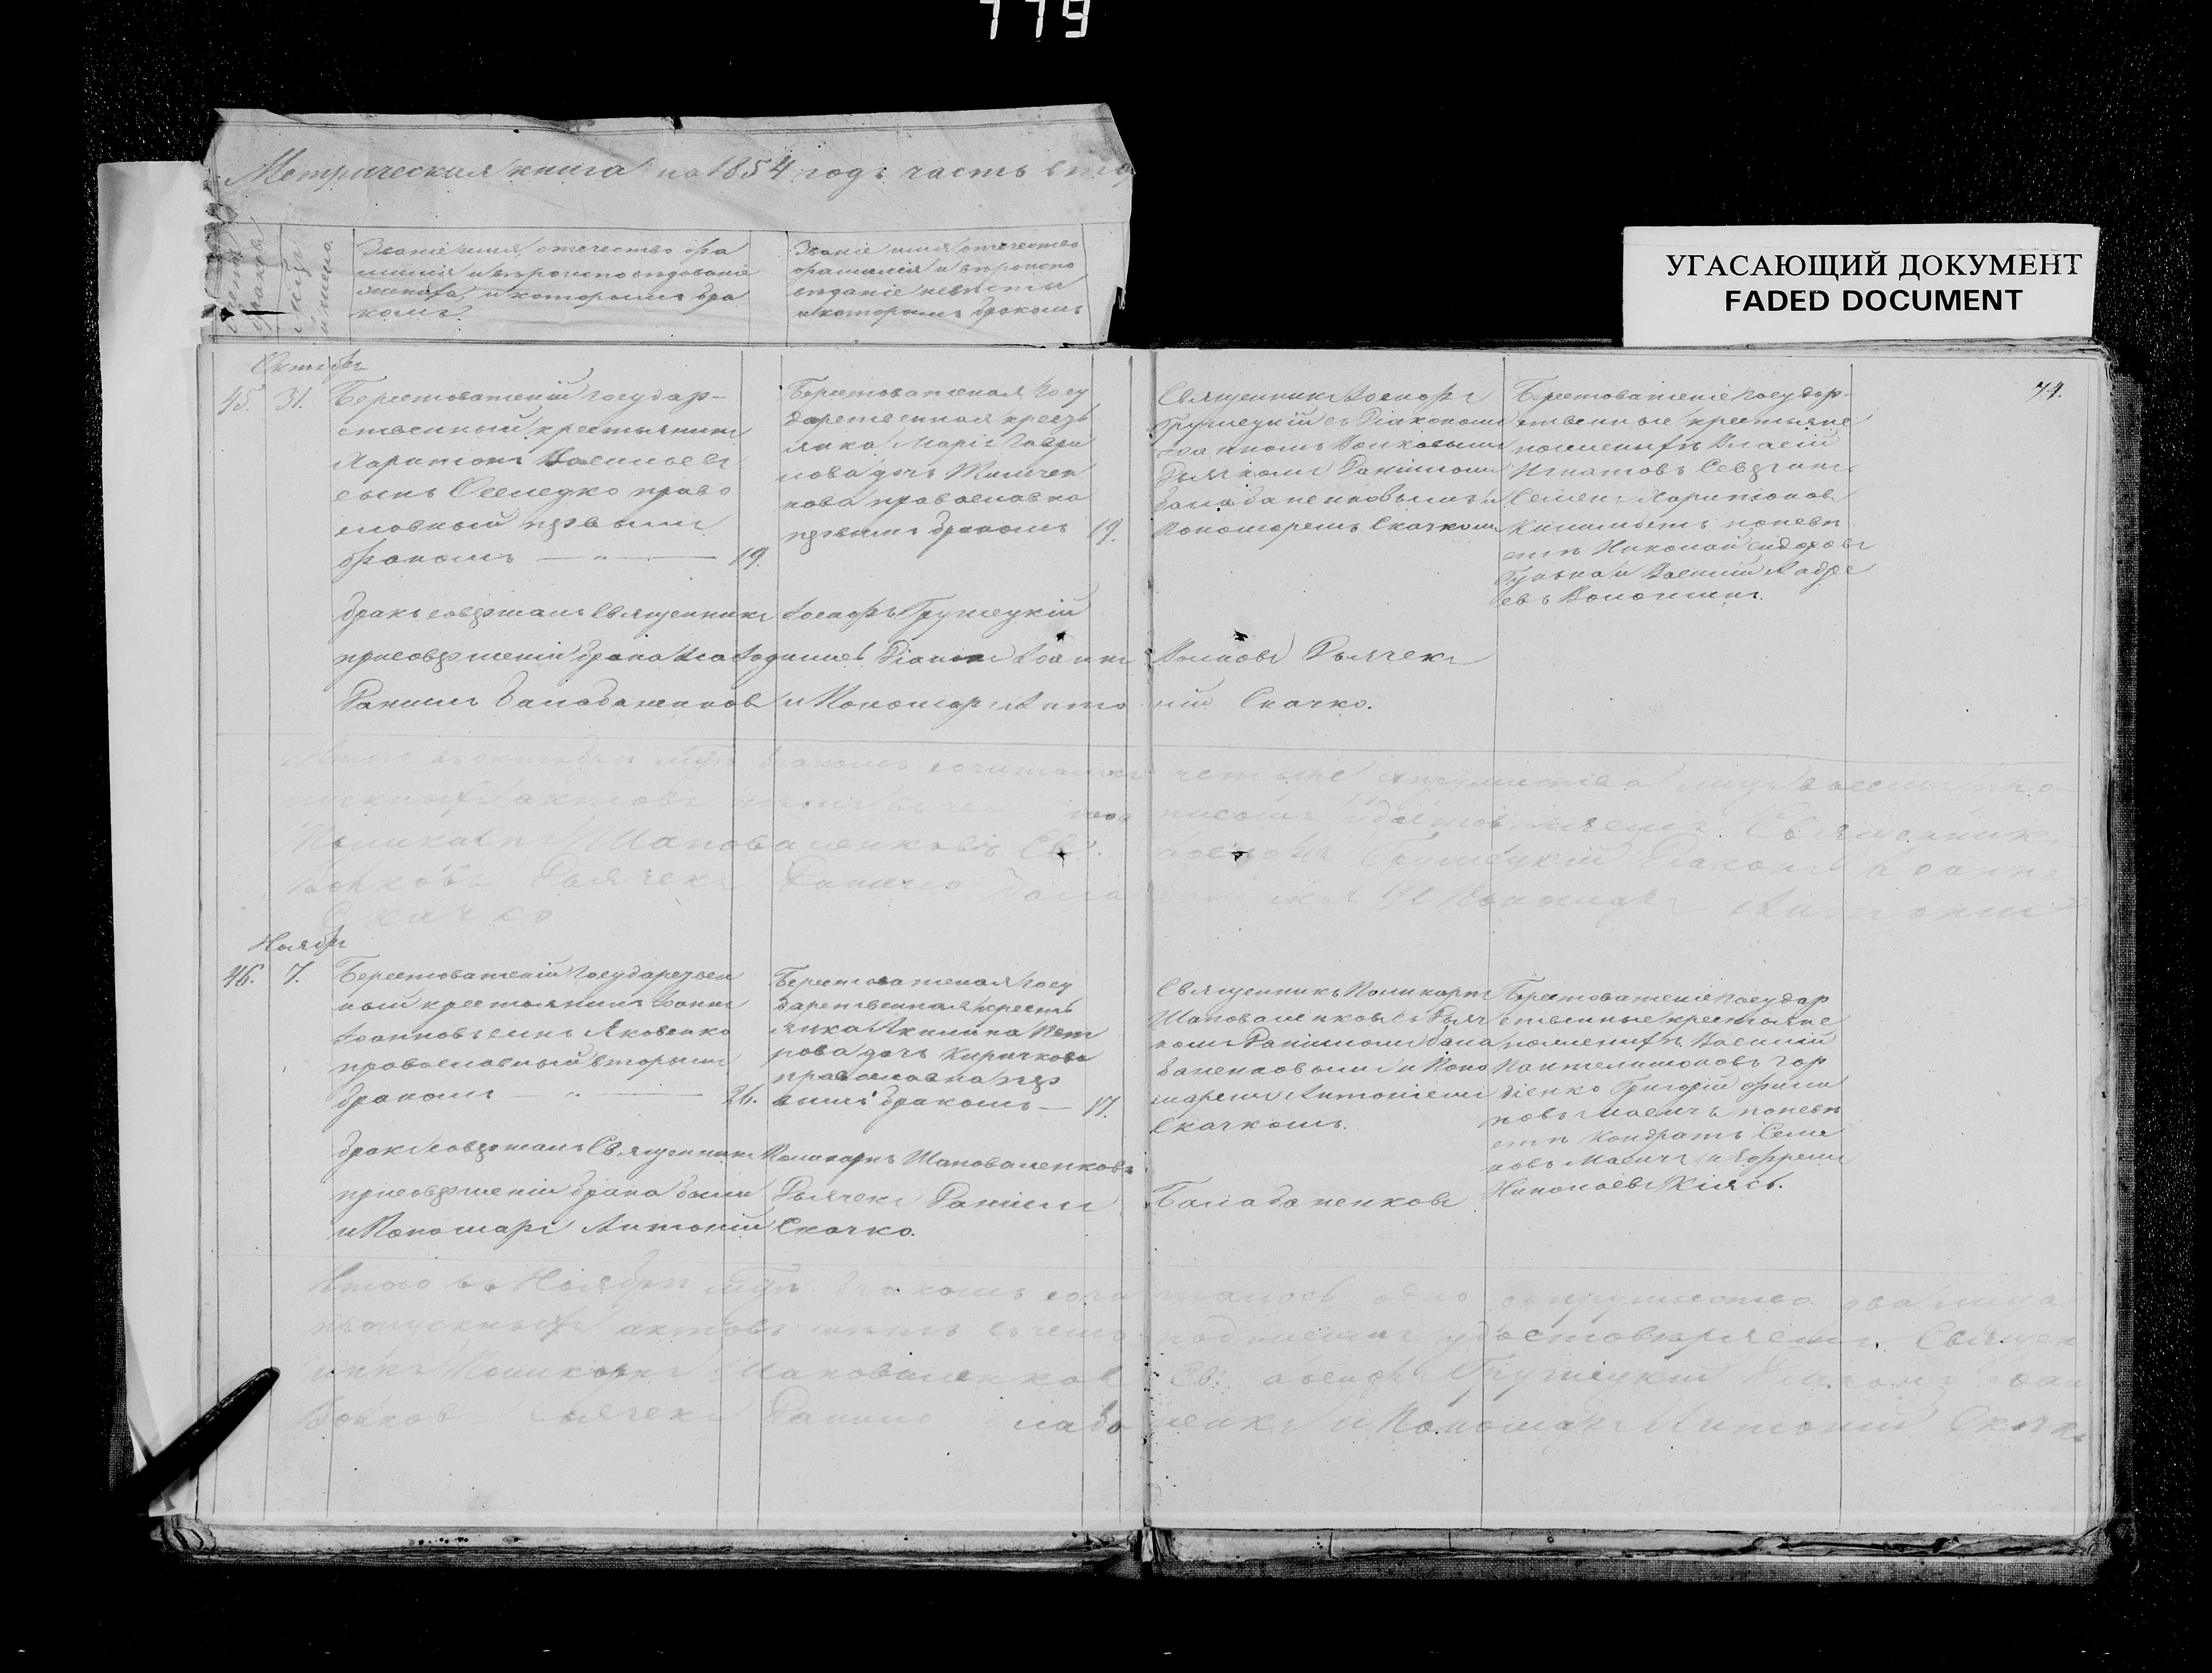 779
Метрическая книга на 1854 годъ часть втор
УГАСАЮЩИЙ ДОКУМЕНТ
FADED DOCUMENT
Званіе имя, отечество фа
миліи и вѣроисповѣданіе
жениха, и которымъ бра
комъ.
Званіе имя отечество
фамилія и вѣроиспо
вѣданіе невѣсты
и которымъ бракомъ
74.
Октябрь
45. 31.
Берестоватскій государ-
ственный крестьянинъ
Харитонъ Васильевъ
сынъ Оселедко право
славный первымъ
бракомъ — „ — 19.
Берестоватская госу
дарственная кресть
янка Марія Гаври
лова дочь
нова православна
первымъ бракомъ 19.
Священникъ Іосифъ
Грушецкій съ Діакономъ
Іоанномъ Волковымъ
Дьячкомъ Даніиломъ
Балабаненковымъ и
Пономаремъ Скачкомъ
Берестоватскіе государ-
ственные крестьяне
по женихѣ Власій
Игнатовъ
Семенъ Харитоновъ
по невѣ
стѣ Николай Сидоровъ
и Василій Андре
евъ
бракъ совершалъ Священникъ Іосифъ Грушецкій
при совершеніи брака находились Діаконъ Іоаннъ Волковъ Дьячекъ
Даніилъ Балабаненковъ и Пономарь Антоній Скачко.
Итого въ октябрѣ мцѣ бракомъ сочиталось четыре супружества лицъ восемь про
пускныхъ актовъ нѣтъ въ чемъ подписомъ удостовѣряемъ. Священникъ
Поликарпъ Шаповаленковъ Св. Іосифъ Грушецкій Діаконъ Іоаннъ
Волковъ Дьячекъ Данило Балабаненковъ И Пономарь Антоній
Скачко
Ноябрь
46. 7.
Берестоватскій Государствен
ный крестьянинъ Іоаннъ
Іоанновъ сынъ Яковенко
православный вторымъ
бракомъ — „ — 26.
Берестоватская госу
дарственная кресть
янка Акилина Пет
рова дочь Киричкова
православна пер
вымъ бракомъ — 17.
Священникъ Поликарпъ
Шаповаленковъ съ Дьяч
комъ Даніиломъ Бала
баненковымъ и Поно
маремъ Антоніемъ
Скачкомъ.
Берестоватскіе государ
ственные крестьяне
по женихѣ Василій
Пантелимоновъ Гор
діенко Григорій Фили
повъ по невѣ
стѣ Кондратъ Семе
новъ и Ефремъ
Николаевъ
бракъ совершалъ Священникъ Поликарпъ Шаповаленковъ
при совершеніи брака были Дьячекъ Даніилъ Балабаненковъ
и Пономарь Антоній Скачко.
Итого въ Ноябрѣ мцѣ бракомъ сочиталось одно супружество два лица
пропускныхъ актовъ нѣтъ въ чемъ подписомъ удостовѣряемъ. Священ
никъ Поликарпъ Шаповаленковъ Св. Іосифъ Грушецкій Діаконъ Іоан
Волковъ Дьячекъ Данило И Пономарь Антоній Скачко